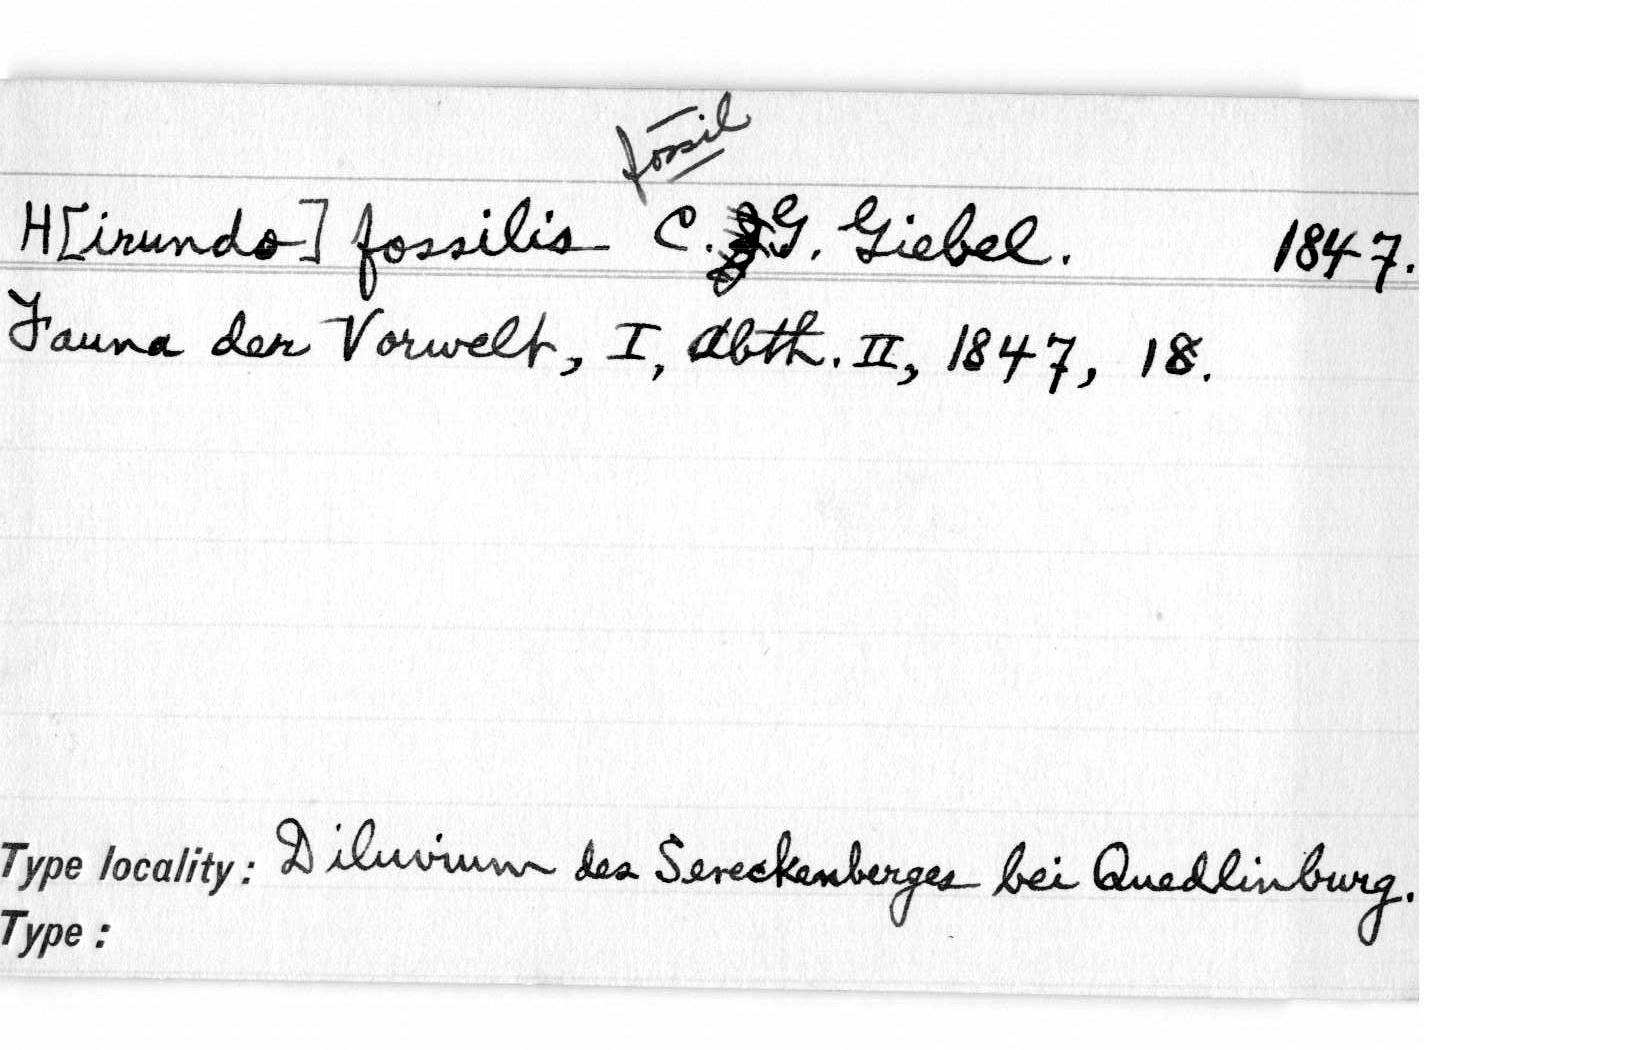 fossil
H[irundo] fossilis C. G. Giebel. 1847.
Fauna der Vorwelt, I, Abth. II, 1847, 18.
Type locality: Diluvium des Sereckenberges bei Quedlinburg.
Type: